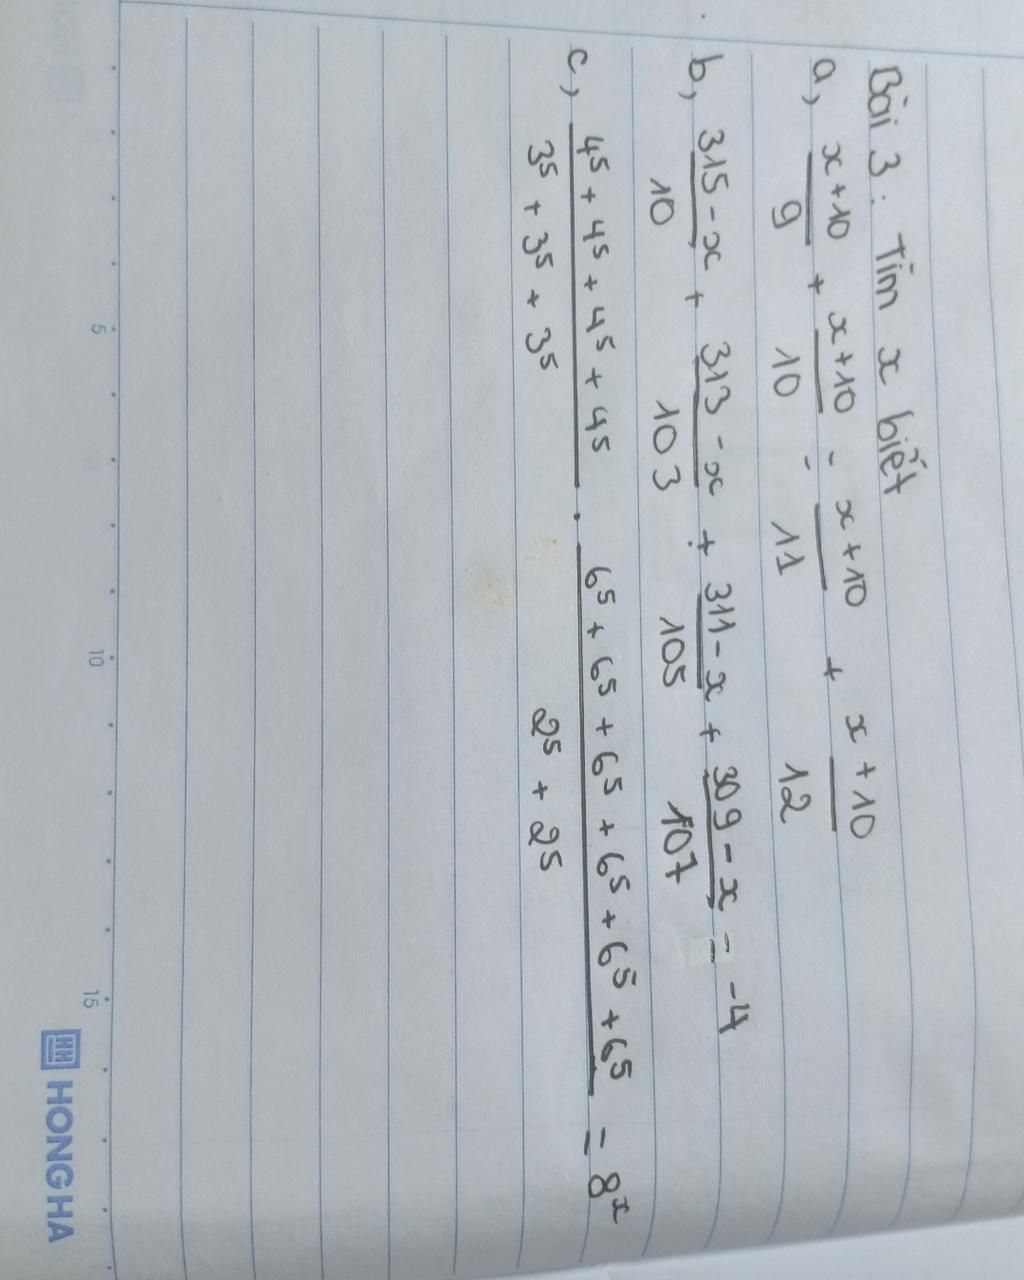 Bài 3: Tìm x biết
a, x+10/9 + x+10/10 - x+10/11 + x+10/12
b, 315-x/10 + 313-x/103 + 311-x/105 + 309-x/107 = -4
c, 4⁵+4⁵+4⁵+4⁵/3⁵+3⁵+3⁵ . 6⁵+6⁵+6⁵+6⁵+6⁵+6⁵/2⁵+2⁵ = 8ˣ
5 10 15
HH HONG HA